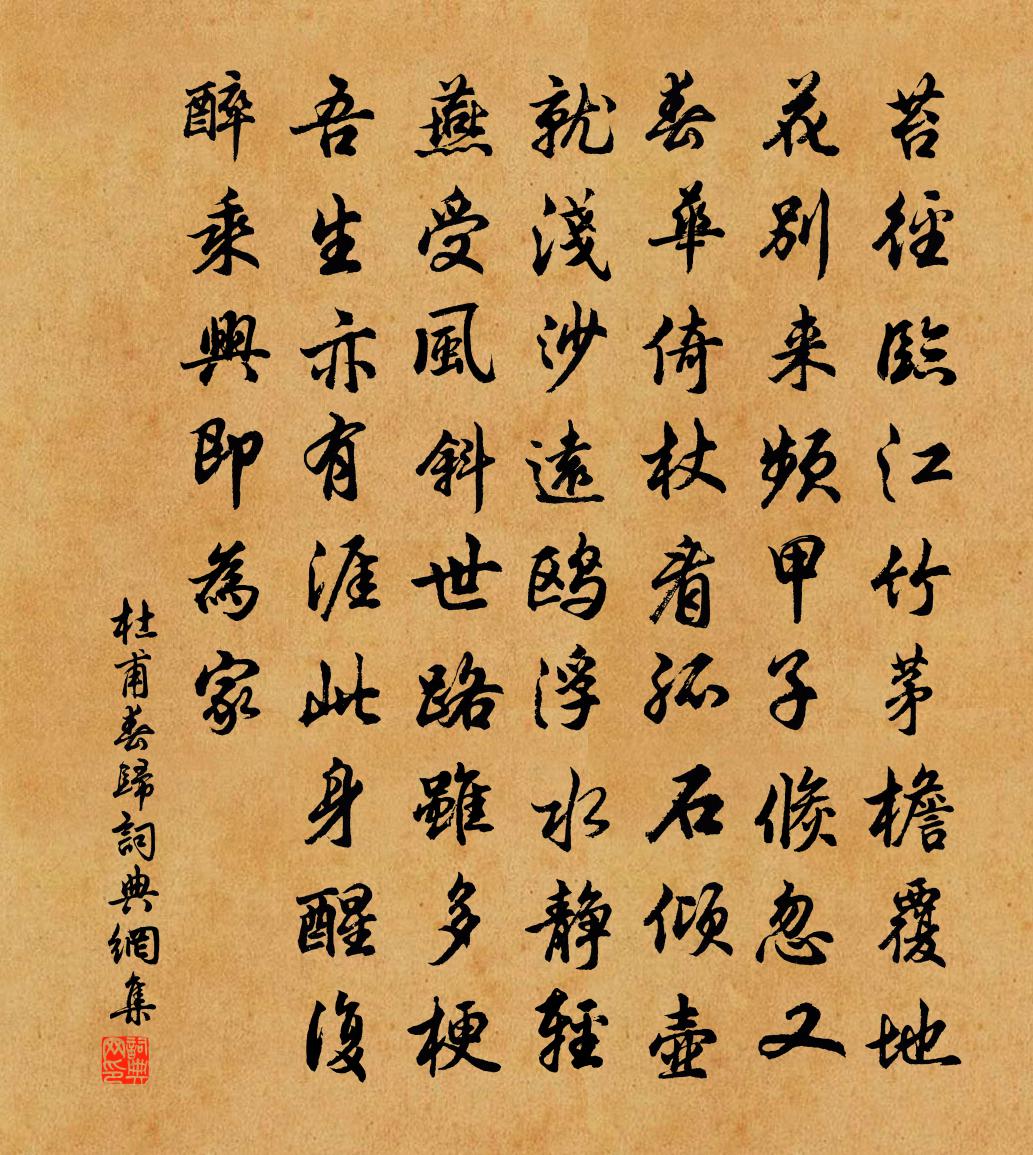 苔徑臨江竹茅檐覆地
花別来頻甲子倏忽又
春華倚杖看孤石傾壺
就淺沙遠鷗浮水静輕
燕受風斜世路雖多梗
吾生亦有涯此身醒復
醉乘興即為家
杜甫春歸詞典網集
詞典网印